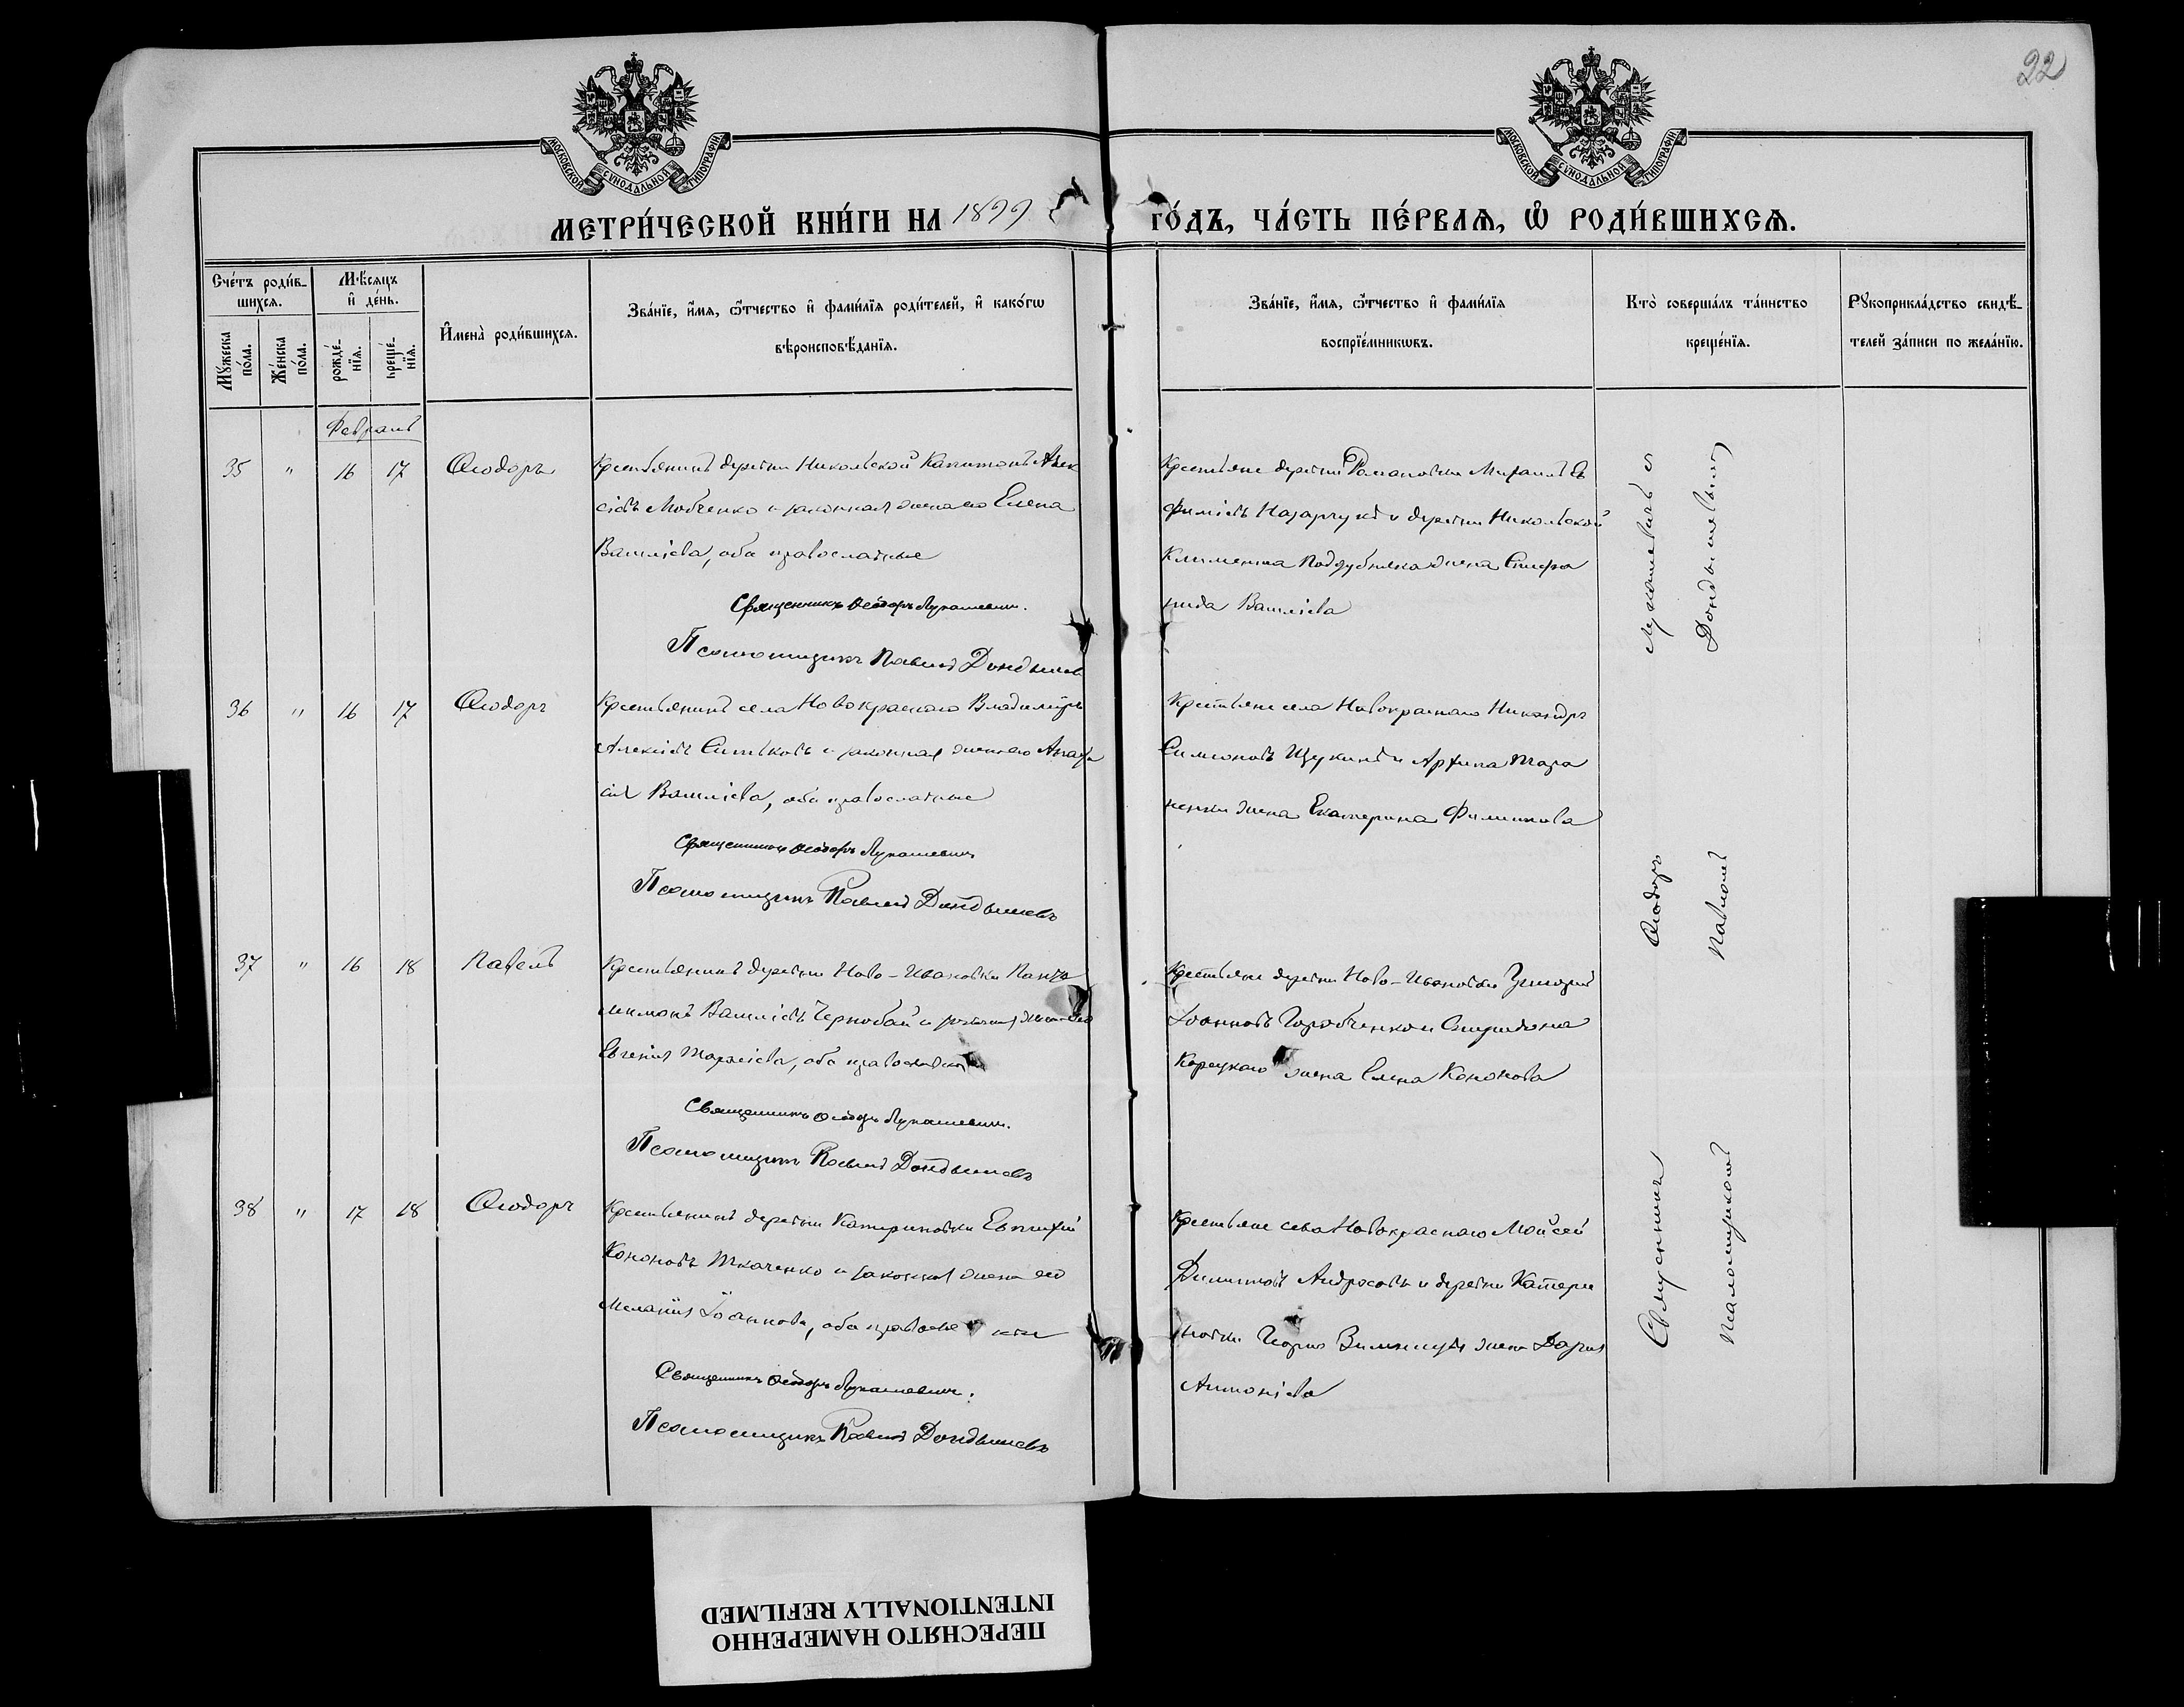 22
МОСКОВСКОЙ СѴНОДАЛЬНОЙ ТИПОГРАФІИ
МОСКОВСКОЙ СѴНОДАЛЬНОЙ ТИПОГРАФІИ
МЕТРИ́ЧЕСКОЙ КНИ́ГИ НА 1899 ГО́ДЪ, ЧА́СТЬ ПЕ́РВАѦ, Ѽ РОДИ́ВШИХСѦ.
Сче́тъ роди́в-
шихсѧ.
Мѣ́сѧцъ
и҆ де́нь.
Мꙋ́жеска
по́ла.
Же́нска
по́ла.
рожде́-
нїѧ.
креще́-
нїѧ.
И҆мена̀ роди́вшихсѧ.
Зва́нїе, и҆́мѧ, ѻ҆́тчество и҆ фами́лїѧ роди́телей, и҆ како́гѡ
вѣроисповѣ́данїѧ.
Зва́нїе, и҆́мѧ, ѻ҆́тчество и҆ фами́лїѧ
воспрїе́мникѡвъ.
Кто̀ соверша́лъ та́инство
креще́нїѧ.
Рꙋкоприкла́дство свидѣ́-
телей за́писи по жела́нїю.
Февраль
35 " 16 17 Ѳеодоръ
Крестьянинъ деревни Никольской Капитонъ Алек
сіевъ Любченко и законная жена его Елена
Василіева, оба православные
Священникъ Ѳеодоръ Лукашевич.
Псаломщикъ Павелъ Дондышев
Крестьяне деревни Романовки Михаилъ Ев
фиміевъ Назарчукъ и деревни Никольской
Климента Поддубняка жена Спири
Василіева
36 " 16 17 Ѳеодоръ
Крестьянинъ села Новокраснаго Владиміръ
Алексіевъ Ситьковъ и законная жена его Анаста
сія Василіева, оба православные
Священникъ Ѳеодоръ Лукашевич
Псаломщикъ Павелъ Дондышевъ
Крестьяне села Новокраснаго Никандръ
Симеоновъ Щукинъ и
ненки жена Екатерина Филиппова
37 " 16 18 Павелъ
Крестьянинъ деревни Ново-Ивановки Панте
лимонъ Василіевъ Чернобай и законная жена его
Евгенія оба православные
Священникъ Ѳеодоръ Лукашевич.
Псаломщикъ Павелъ Дондышевъ
Крестьяне деревни Ново-Ивановки Григорій
Іоанновъ Горобченко и Спиридона
Корецкаго жена Елена Кононова
38 " 17 18 Ѳеодоръ
Крестьянинъ деревни Катериновки Евтихій
Кононовъ Ткаченко и законная жена его
Меланія Іоаннова, оба православные
Священникъ Ѳеодоръ Лукашевич.
Псаломщикъ Павелъ Дондышевъ
Крестьяне села Новокраснаго Моѵсей
Димитріевъ Андросовъ и деревни Катери
новки Георгія жена Дарія
Антоніева
Священникъ Ѳеодоръ Лукашевичъ съ
псаломщикомъ Павломъ Дондышевымъ
ПЕРЕСНЯТО НАМЕРЕННО
INTENTIONALLY REFILMED